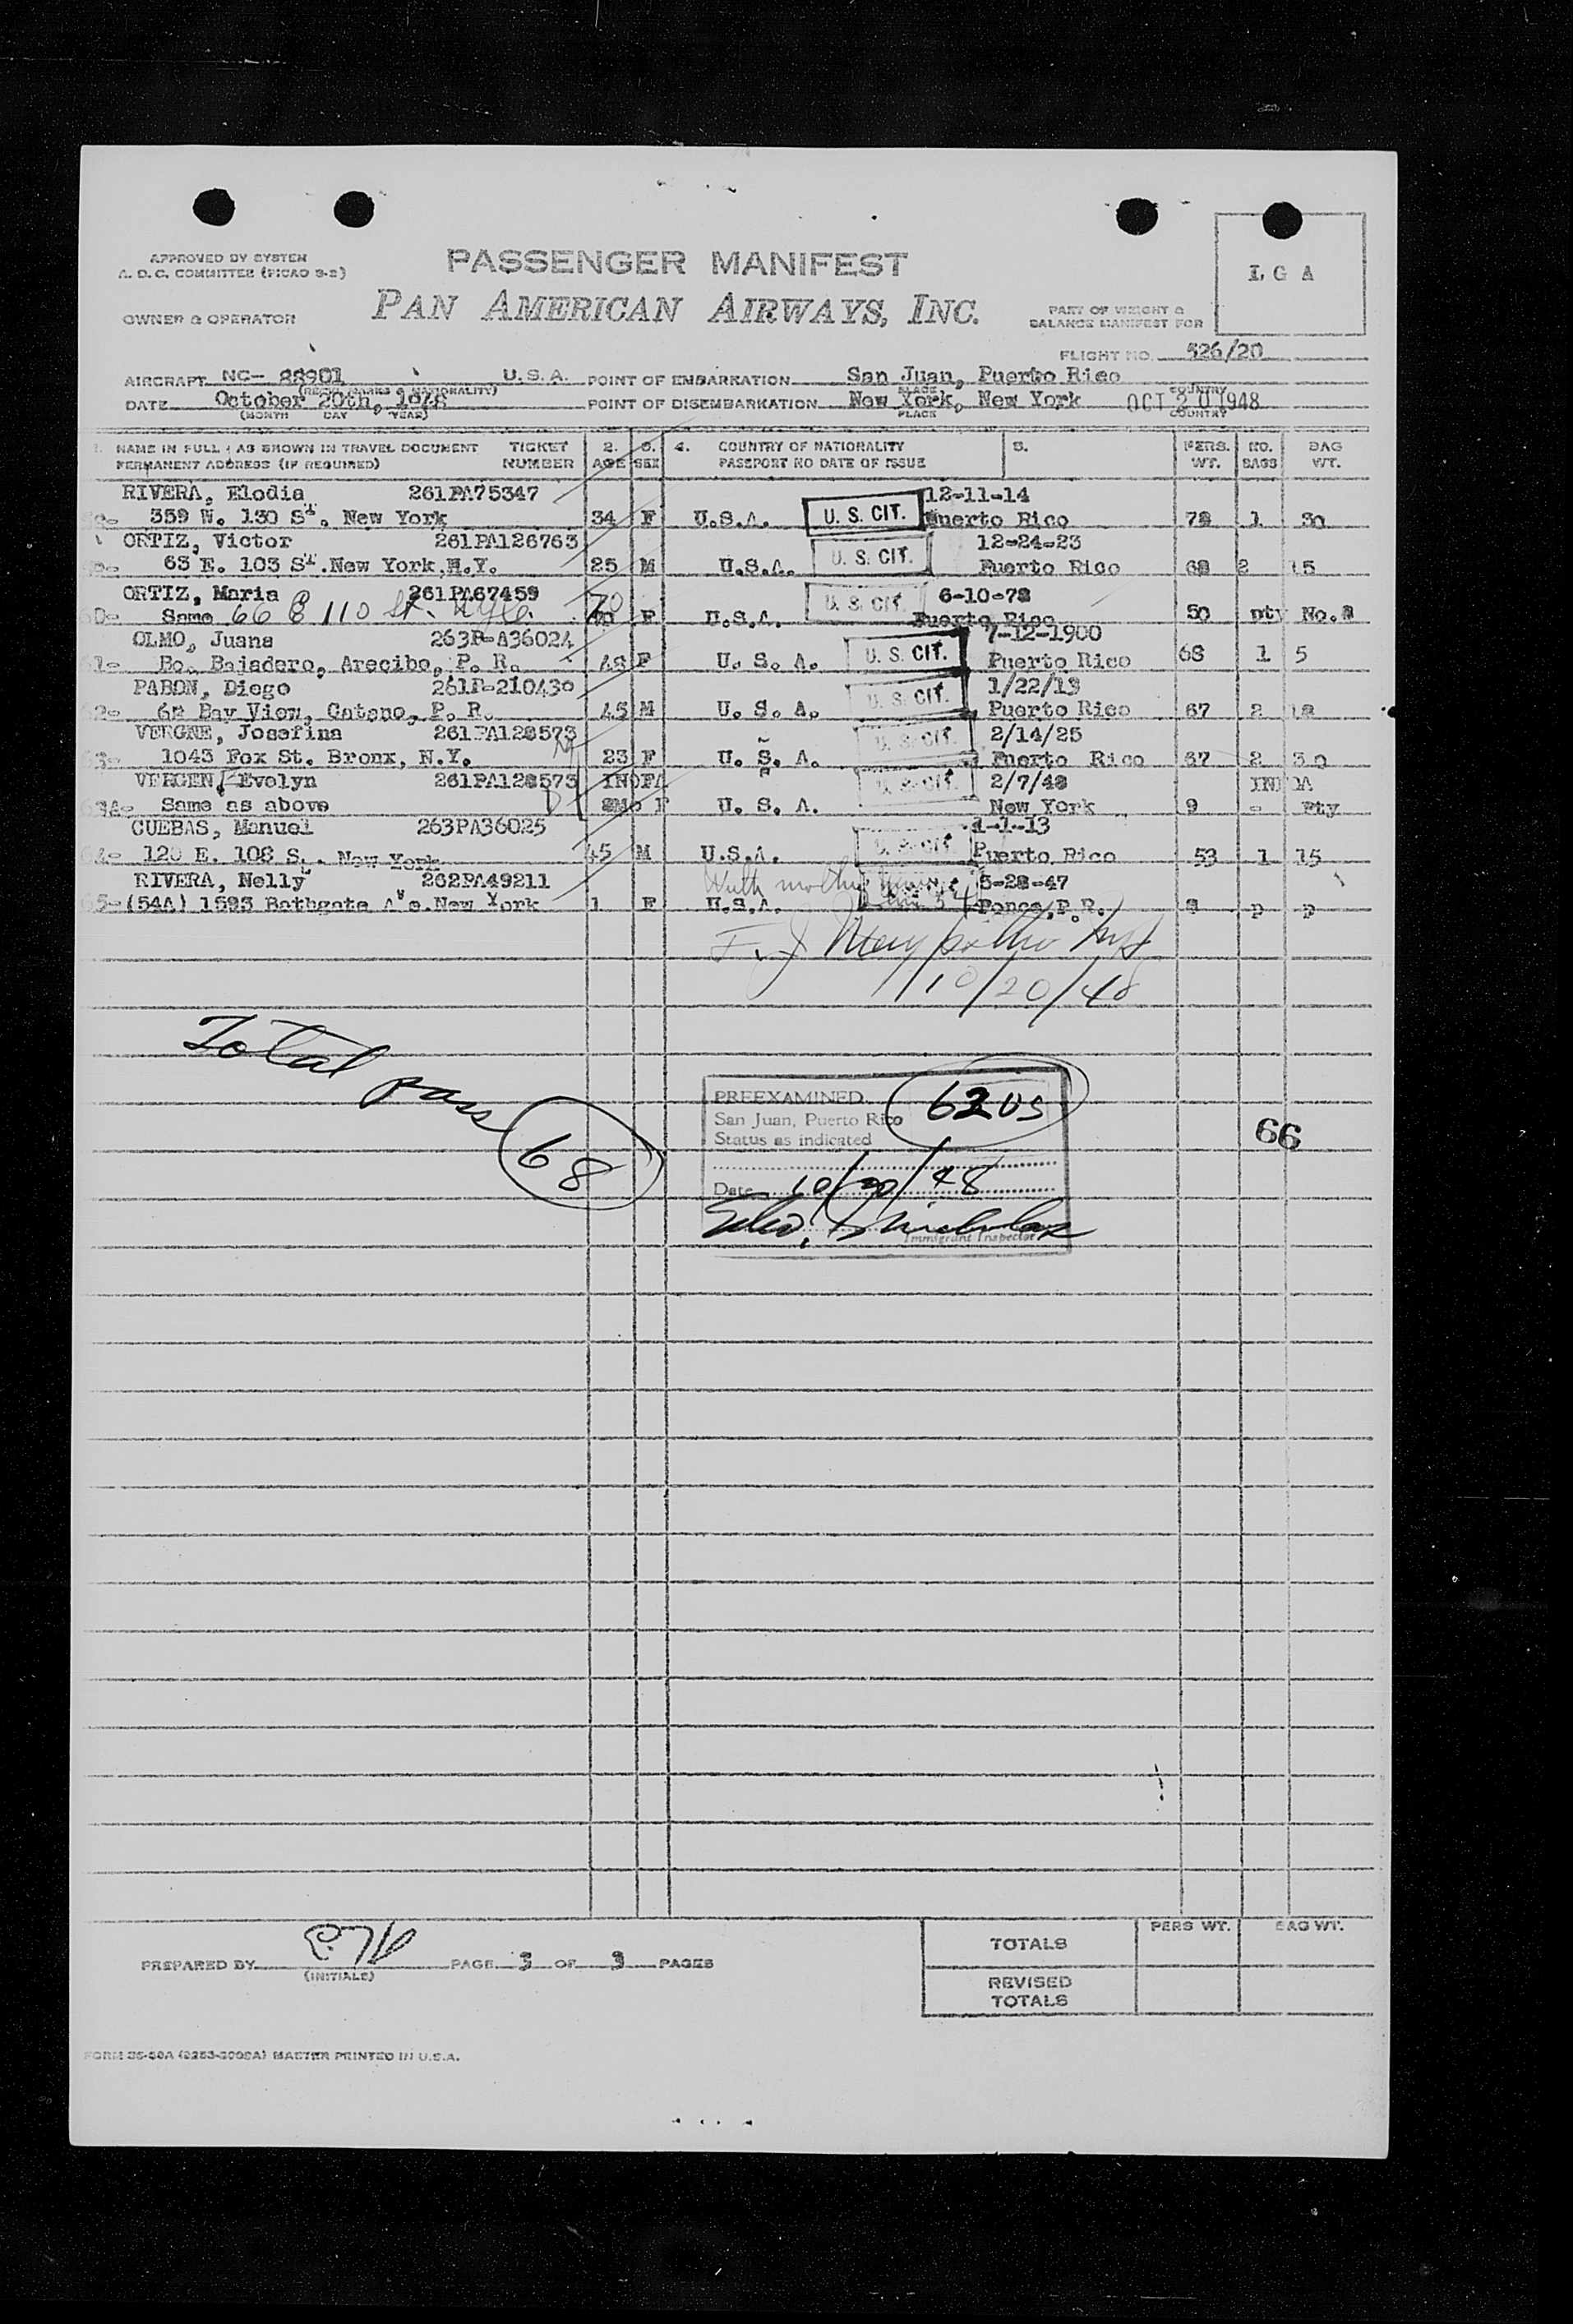 APPROVED BY SYSTEM
A. O. C. COMMITTEE (PICAO 9-2)
PASSENGER MANIFEST
L G A
OWNER & OPERATOR
PAN AMERICAN AIRWAYS, INC.
PART OF WEIGHT &
BALANCE MANIFEST FOR
FLIGHT NO. 526/20
AIRCRAFT NC- 88901 U.S.A. POINT OF EMBARKATION San Juan, Puerto Rico
DATE October 20th, 1948 POINT OF DISEMBARKATION New York, New York OCT 20 1948
(MONTH DAY YEAR) PLACE COUNTRY
1. NAME IN FULL ; AS SHOWN IN TRAVEL DOCUMENT TICKET 2. 3. 4. COUNTRY OF NATIONALITY 5. PERS. NO. BAG
PERMANENT ADDRESS (IF REQUIRED) NUMBER AGE SEX PASSPORT NO DATE OF ISSUE WT. BAGS WT.
RIVERA, Elodia 261PA75347 12-11-14
359 W. 130 St. New York 34 F U.S.A. U. S. CIT. Puerto Rico 78 1 30
ORTIZ, Victor 261PA126763 12-24-23
63 E. 103 St. New York, N.Y. 25 M U.S.A. U. S. CIT. Puerto Rico 68 2 15
ORTIZ, Maria 261PA67459 6-10-78
Same 66 E 110 St. NYC. 70 F U.S.A. U. S. CIT. Puerto Rico 50 pty No.2
OLMO, Juana 263P-A36024 7-12-1900
61- Bo. Bajadero, Arecibo, P. R. 48 F U. S. A. U. S. CIT. Puerto Rico 68 1 5
PABON, Diego 261P-210430 1/22/13
62- 62 Bay View, Catano, P. R. 45 M U. S. A. U. S. CIT. Puerto Rico 67 2 18
VERGNE, Josefina 261PA128573 2/14/25
63- 1043 Fox St. Bronx, N.Y. 23 F U. S. A. U. S. CIT. Puerto Rico 67 2 30
VERGEN, Evelyn 261PA128573 INDFA 2/7/48
63A- Same as above 8Mo F U. S. A. U. S. CIT. New York 9 - Pty
CUEBAS, Manuel 263PA36025 1-1-13
64- 120 E. 108 S. . New York 45 M U.S.A. U. S. CIT. Puerto Rico 53 1 15
RIVERA, Nelly 262PA49211 With mother 5-28-47
65- (54A) 1593 Bathgate Ave. New York 1 F U.S.A. Ponce, P.R. p p
10/20/48
Total pass
68
PREEXAMINED
San Juan, Puerto Rico
Status as indicated
62 US
66
Date 10/20/48
Immigrant Inspector
PERS WT. BAG WT.
TOTALS
PREPARED BY PAGE 3 OF 3 PAGES
(INITIALS)
REVISED
TOTALS
MASTER PRINTED IN U.S.A.